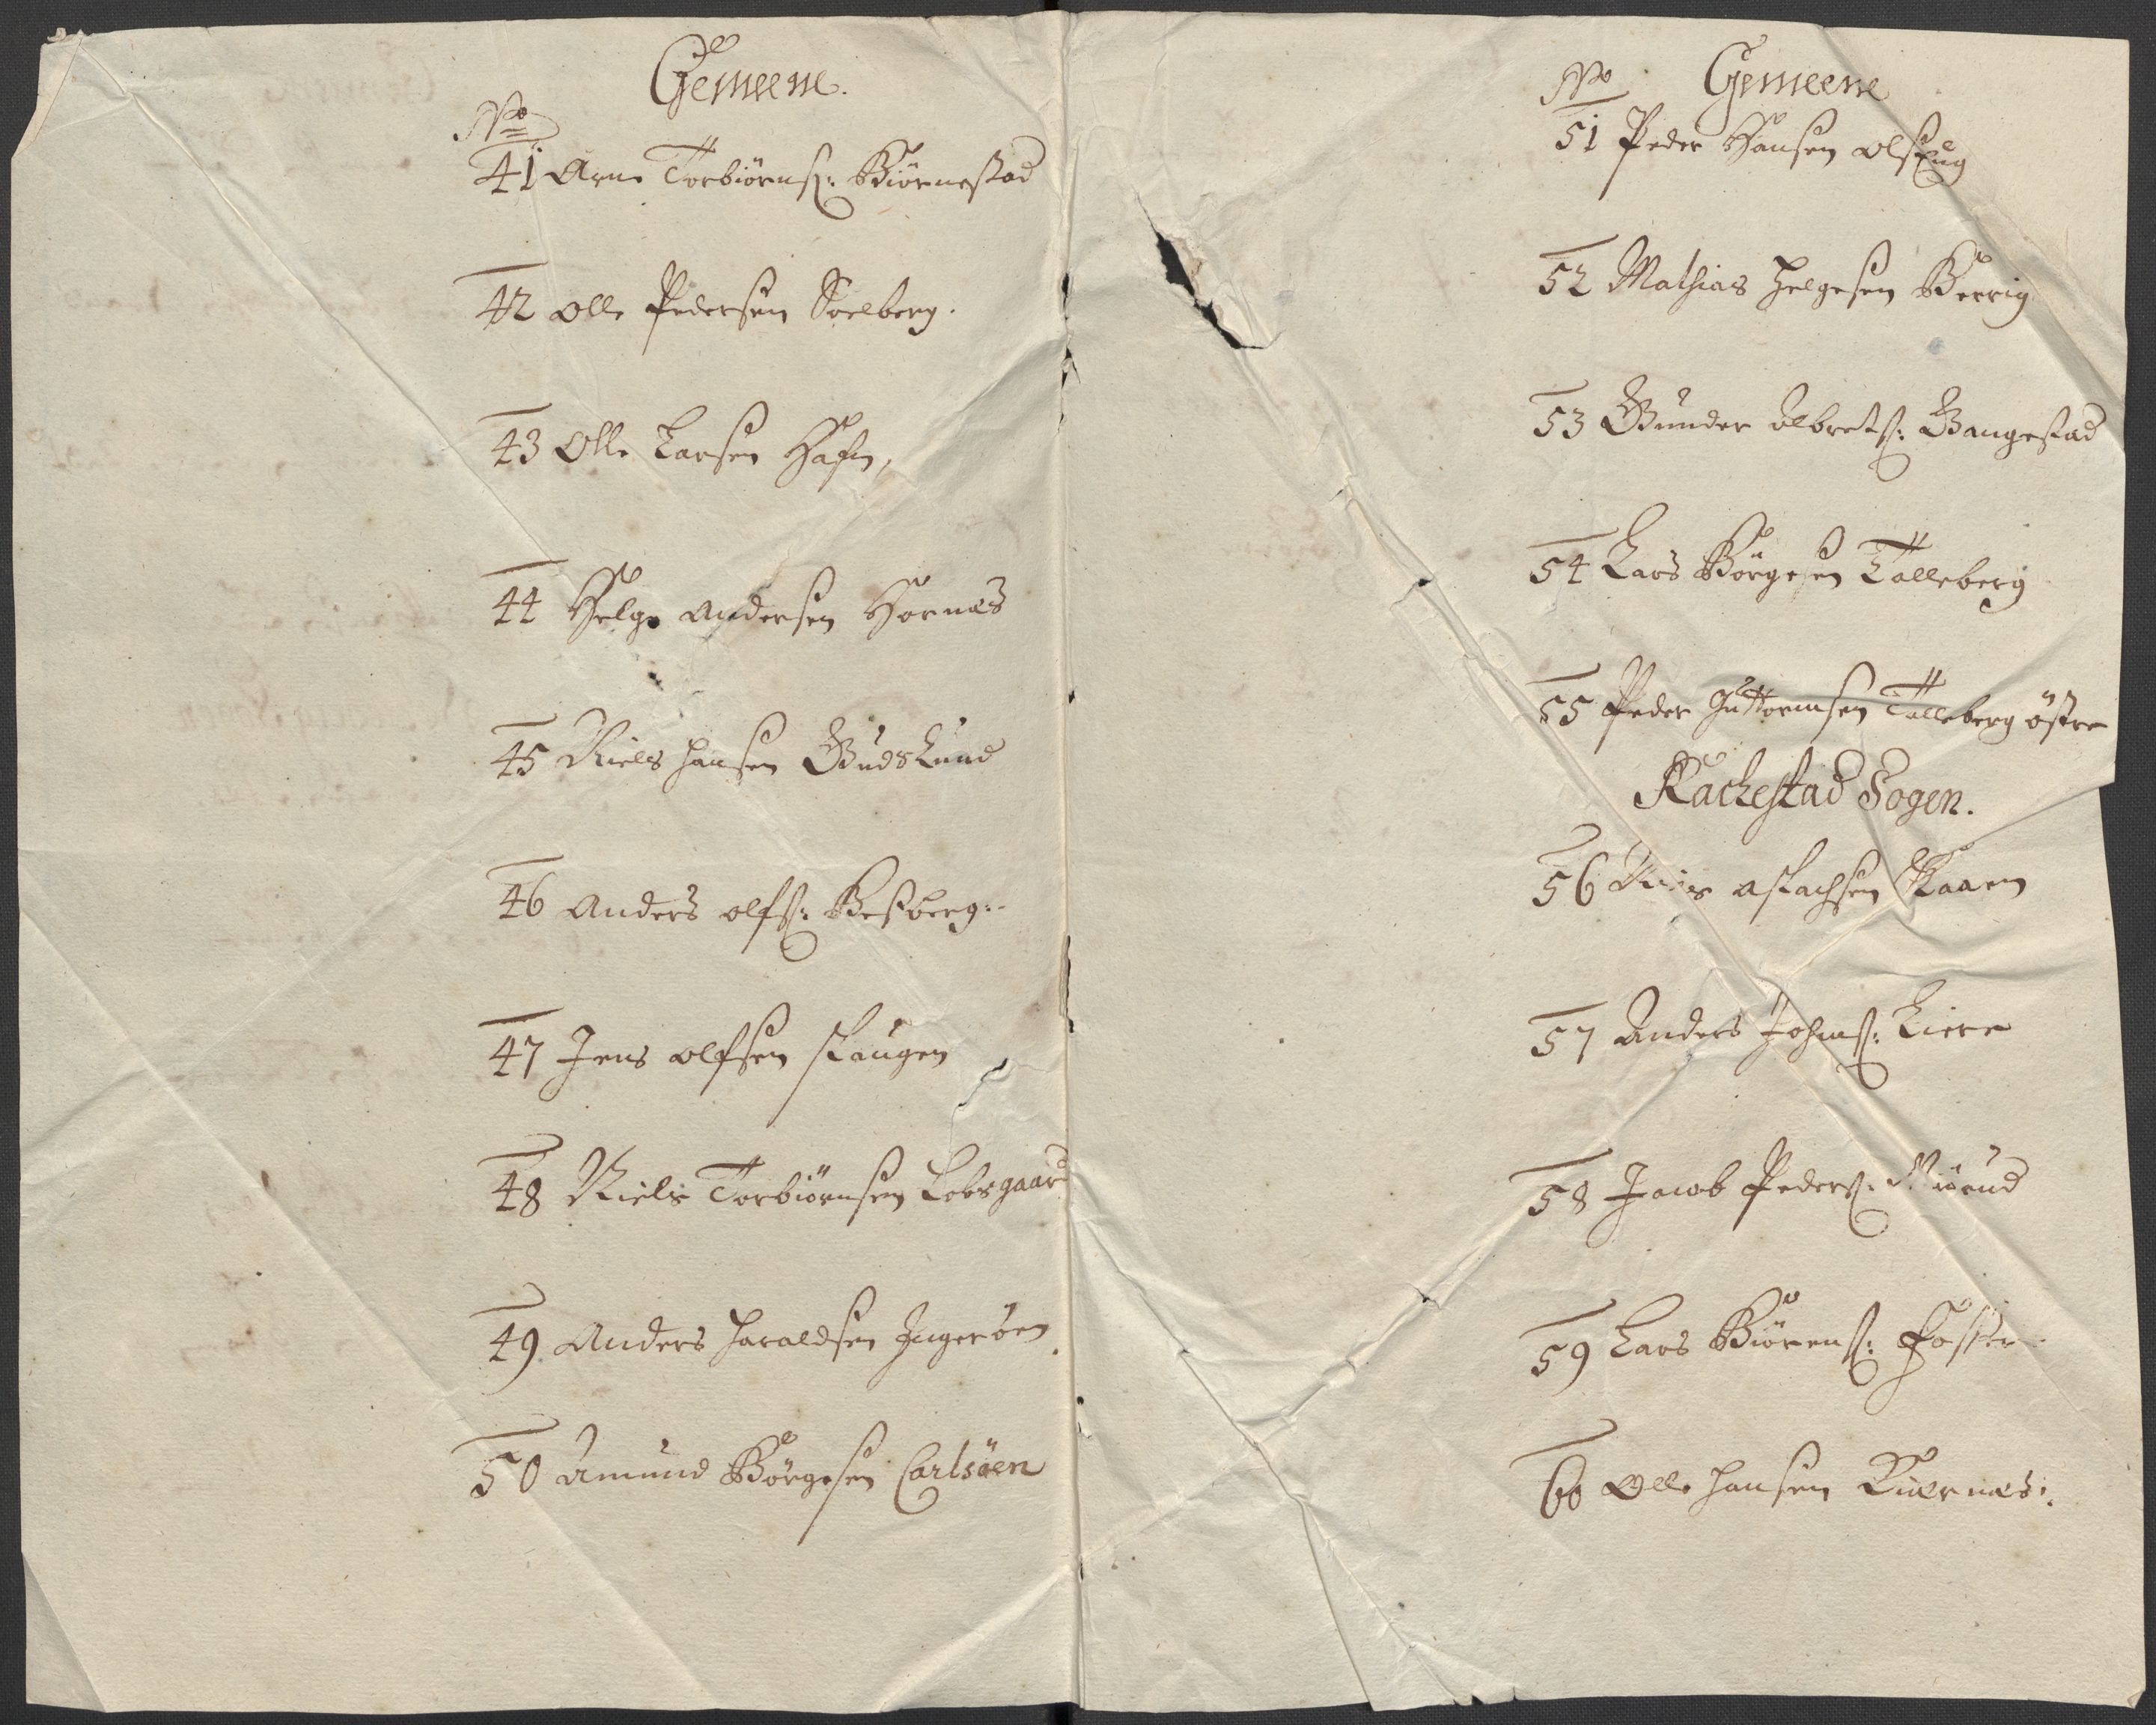 Gemeene.
No
41 Arne Torbiörnß: Biörnestad
42 Olle Pedersen Soelberg.
43 Olle Larsen Hafn,
44 Helge Andersen Hornæs
45 Niels Hansen Gudslund
46 Anders Olfß: Besberg:
47 Jens Olfsen skaugen
48 Niels Torbiörnsen Lobsgaard
49 Anders Haraldsen Ingeröen
50 Amund Börgesen Carlsöen
No Gemeene
51 Peder Hansen
52 Mathias Helgesen Berrig
53 Gunder Albretß: Gaugestad
54 Lars Börgesen Talleberg
55 Peder Guttormsen Talleberg östre
Rachestad Sogen.
56 Aslachsen Kaaen
57 Anders Johnß: Liere
58 Jacob Pederß:
59 Lars Biörenß: Foster
60 Olle Hansen Kiernæs: